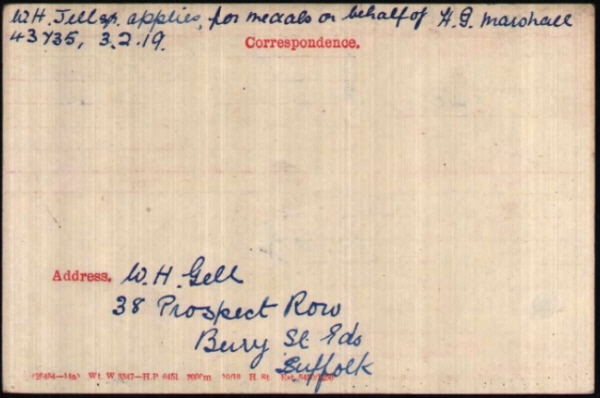 W.H. Jell sp. applies, for medals on behalf of H.G. Marshall
43735, 3.2.19.
Correspondence.
Address. W. H. Gell
38 Prospect Row
Bury St Eds
Suffolk
Wt W 5347—H.P. 6451